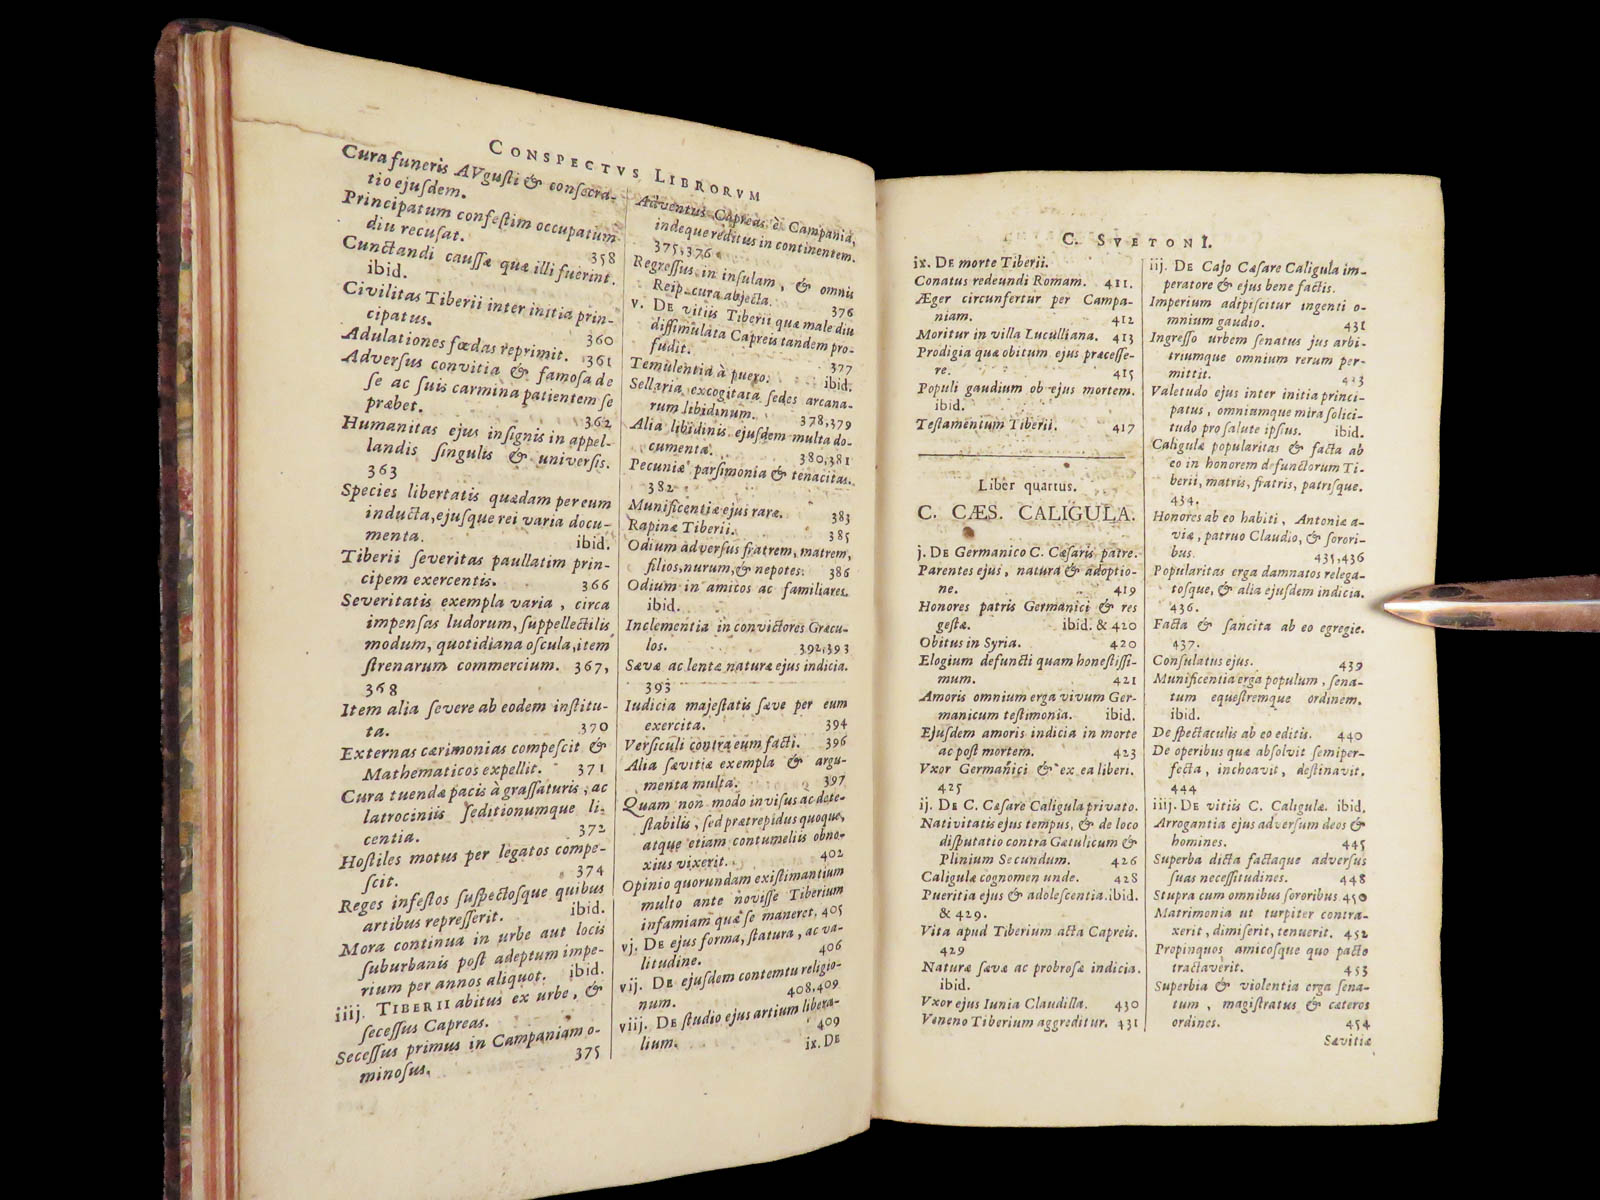 CONSPECTVS LIBRORVM
Cura funeris AVgusti & consecra-
tio ejusdem.
Principatum confestim occupatum
diu recusat. 358
Cunctandi caussæ quæ illi fuerint.
ibid.
Civilitas Tiberii inter initia prin-
cipatus. 360
Adulationes fœdas reprimit. 361
Adversus convitia & famosa de
se ac suis carmina patientem se
præbet. 362
Humanitas ejus insignis in appel-
landis singulis & universis.
363
Species libertatis quædam per eum
inducta, ejusque rei varia docu-
menta. ibid.
Tiberii severitas paullatim prin-
cipem exercentis. 366
Severitatis exempla varia, circa
impensas ludorum, suppellectilis
modum, quotidiana oscula, item
strenarum commercium. 367,
368
Item alia severe ab eodem institu-
ta. 370
Externas cærimonias compescit &
Mathematicos expellit. 371
Cura tuendæ pacis à grassaturis, ac
latrociniis seditionumque li-
centia. 372
Hostiles motus per legatos compe-
scit. 374
Reges infestos suspectosque quibus
artibus represserit. ibid.
Mora continua in urbe aut locis
suburbanis post adeptum impe-
rium per annos aliquot. ibid.
iiij. TIBERII abitus ex urbe, &
secessus Capreas.
Secessus primus in Campaniam o-
minosus. 375
Adventus Capreas è Campania,
indeque reditus in continentem.
375,376
Regressus in insulam, & omnis
Reip. cura abjecta. 376
v. DE vitiis Tiberii quæ male diu
dissimulata Capreis tandem pro-
fudit. 377
Temulentia à puero. ibid.
Sellaria excogitata sedes arcana-
rum libidinum. 378,379
Alia libidinis ejusdem multa do-
cumenta. 380,381
Pecuniæ parsimonia & tenacitas.
382
Munificentiæ ejus raræ. 383
Rapinæ Tiberii. 385
Odium adversus fratrem, matrem,
filios, nurum, & nepotes. 386
Odium in amicos ac familiares.
ibid.
Inclementia in convictores Græcu-
los. 392,393
Sævæ ac lentæ naturæ ejus indicia.
393
Iudicia majestatis sæve per eum
exercita. 394
Versiculi contra eum facti. 396
Alia sævitiæ exempla & argu-
menta multa. 397
Quam non modo invisus ac dete-
stabilis, sed prætrepidus quoque,
atque etiam contumeliis obno-
xius vixerit. 402
Opinio quorundam existimantium
multo ante novisse Tiberium
infamiam quæ se maneret, 405
vj. DE ejus forma, statura, ac va-
litudine. 406
vij. DE ejusdem contemtu religio-
num. 408,409
viij. DE studio ejus artium libera-
lium. 409
ix. DE
C. SVETONI.
ix. DE morte Tiberii.
Conatus redeundi Romam. 411.
Æger circunfertur per Campa-
niam. 412
Moritur in villa Luculliana. 413
Prodigia quæ obitum ejus præcesse-
re. 415
Populi gaudium ob ejus mortem.
ibid.
Testamentum Tiberii. 417
Liber quartus.
C. CÆS. CALIGULA.
j. DE Germanico C. Cæsaris patre.
Parentes ejus, natura & adoptio-
ne. 419
Honores patris Germanici & res
gestæ. ibid. & 420
Obitus in Syria. 420
Elogium defuncti quam honestissi-
mum. 421
Amoris omnium erga vivum Ger-
manicum testimonia. ibid.
Ejusdem amoris indicia in morte
ac post mortem. 423
Vxor Germanici & ex ea liberi.
425
ij. DE C. Cæsare Caligula privato.
Nativitatis ejus tempus, & de loco
disputatio contra Gætulicum &
Plinium Secundum. 426
Caligulæ cognomen unde. 428
Pueritia ejus & adolescentia. ibid.
& 429.
Vita apud Tiberium acta Capreis.
429
Naturæ sævæ ac probrosæ indicia.
ibid.
Vxor ejus Iunia Claudilla. 430
Veneno Tiberium aggreditur. 431
iij. DE Cajo Cæsare Caligula im-
peratore & ejus bene factis.
Imperium adipiscitur ingenti o-
mnium gaudio. 431
Ingresso urbem senatus jus arbi-
triumque omnium rerum per-
mittit. 433
Valetudo ejus inter initia princi-
patus, omniumque mira solici-
tudo pro salute ipsius. ibid.
Caligulæ popularitas & facta ab
eo in honorem defunctorum Ti-
berii, matris, fratris, patrisque.
434.
Honores ab eo habiti, Antoniæ a-
viæ, patruo Claudio, & sorori-
bus. 435,436
Popularitas erga damnatos relega-
tosque, & alia ejusdem indicia.
436.
Facta & sancita ab eo egregie.
437.
Consulatus ejus. 439
Munificentia erga populum, sena-
tum equestremque ordinem.
ibid.
De spectaculis ab eo editis. 440
De operibus quæ absolvit semiper-
fecta, inchoavit, destinavit.
444
iiij. DE vitiis C. Caligulæ. ibid.
Arrogantia ejus adversum deos &
homines. 445
Superba dicta factaque adversus
suas necessitudines. 448
Stupra cum omnibus sororibus 450
Matrimonia ut turpiter contra-
xerit, dimiserit, tenuerit. 452
Propinquos amicosque quo pacto
tractaverit. 453
Superbia & violentia erga sena-
tum, magistratus & cæteros
ordines. 454
Sævitiæ